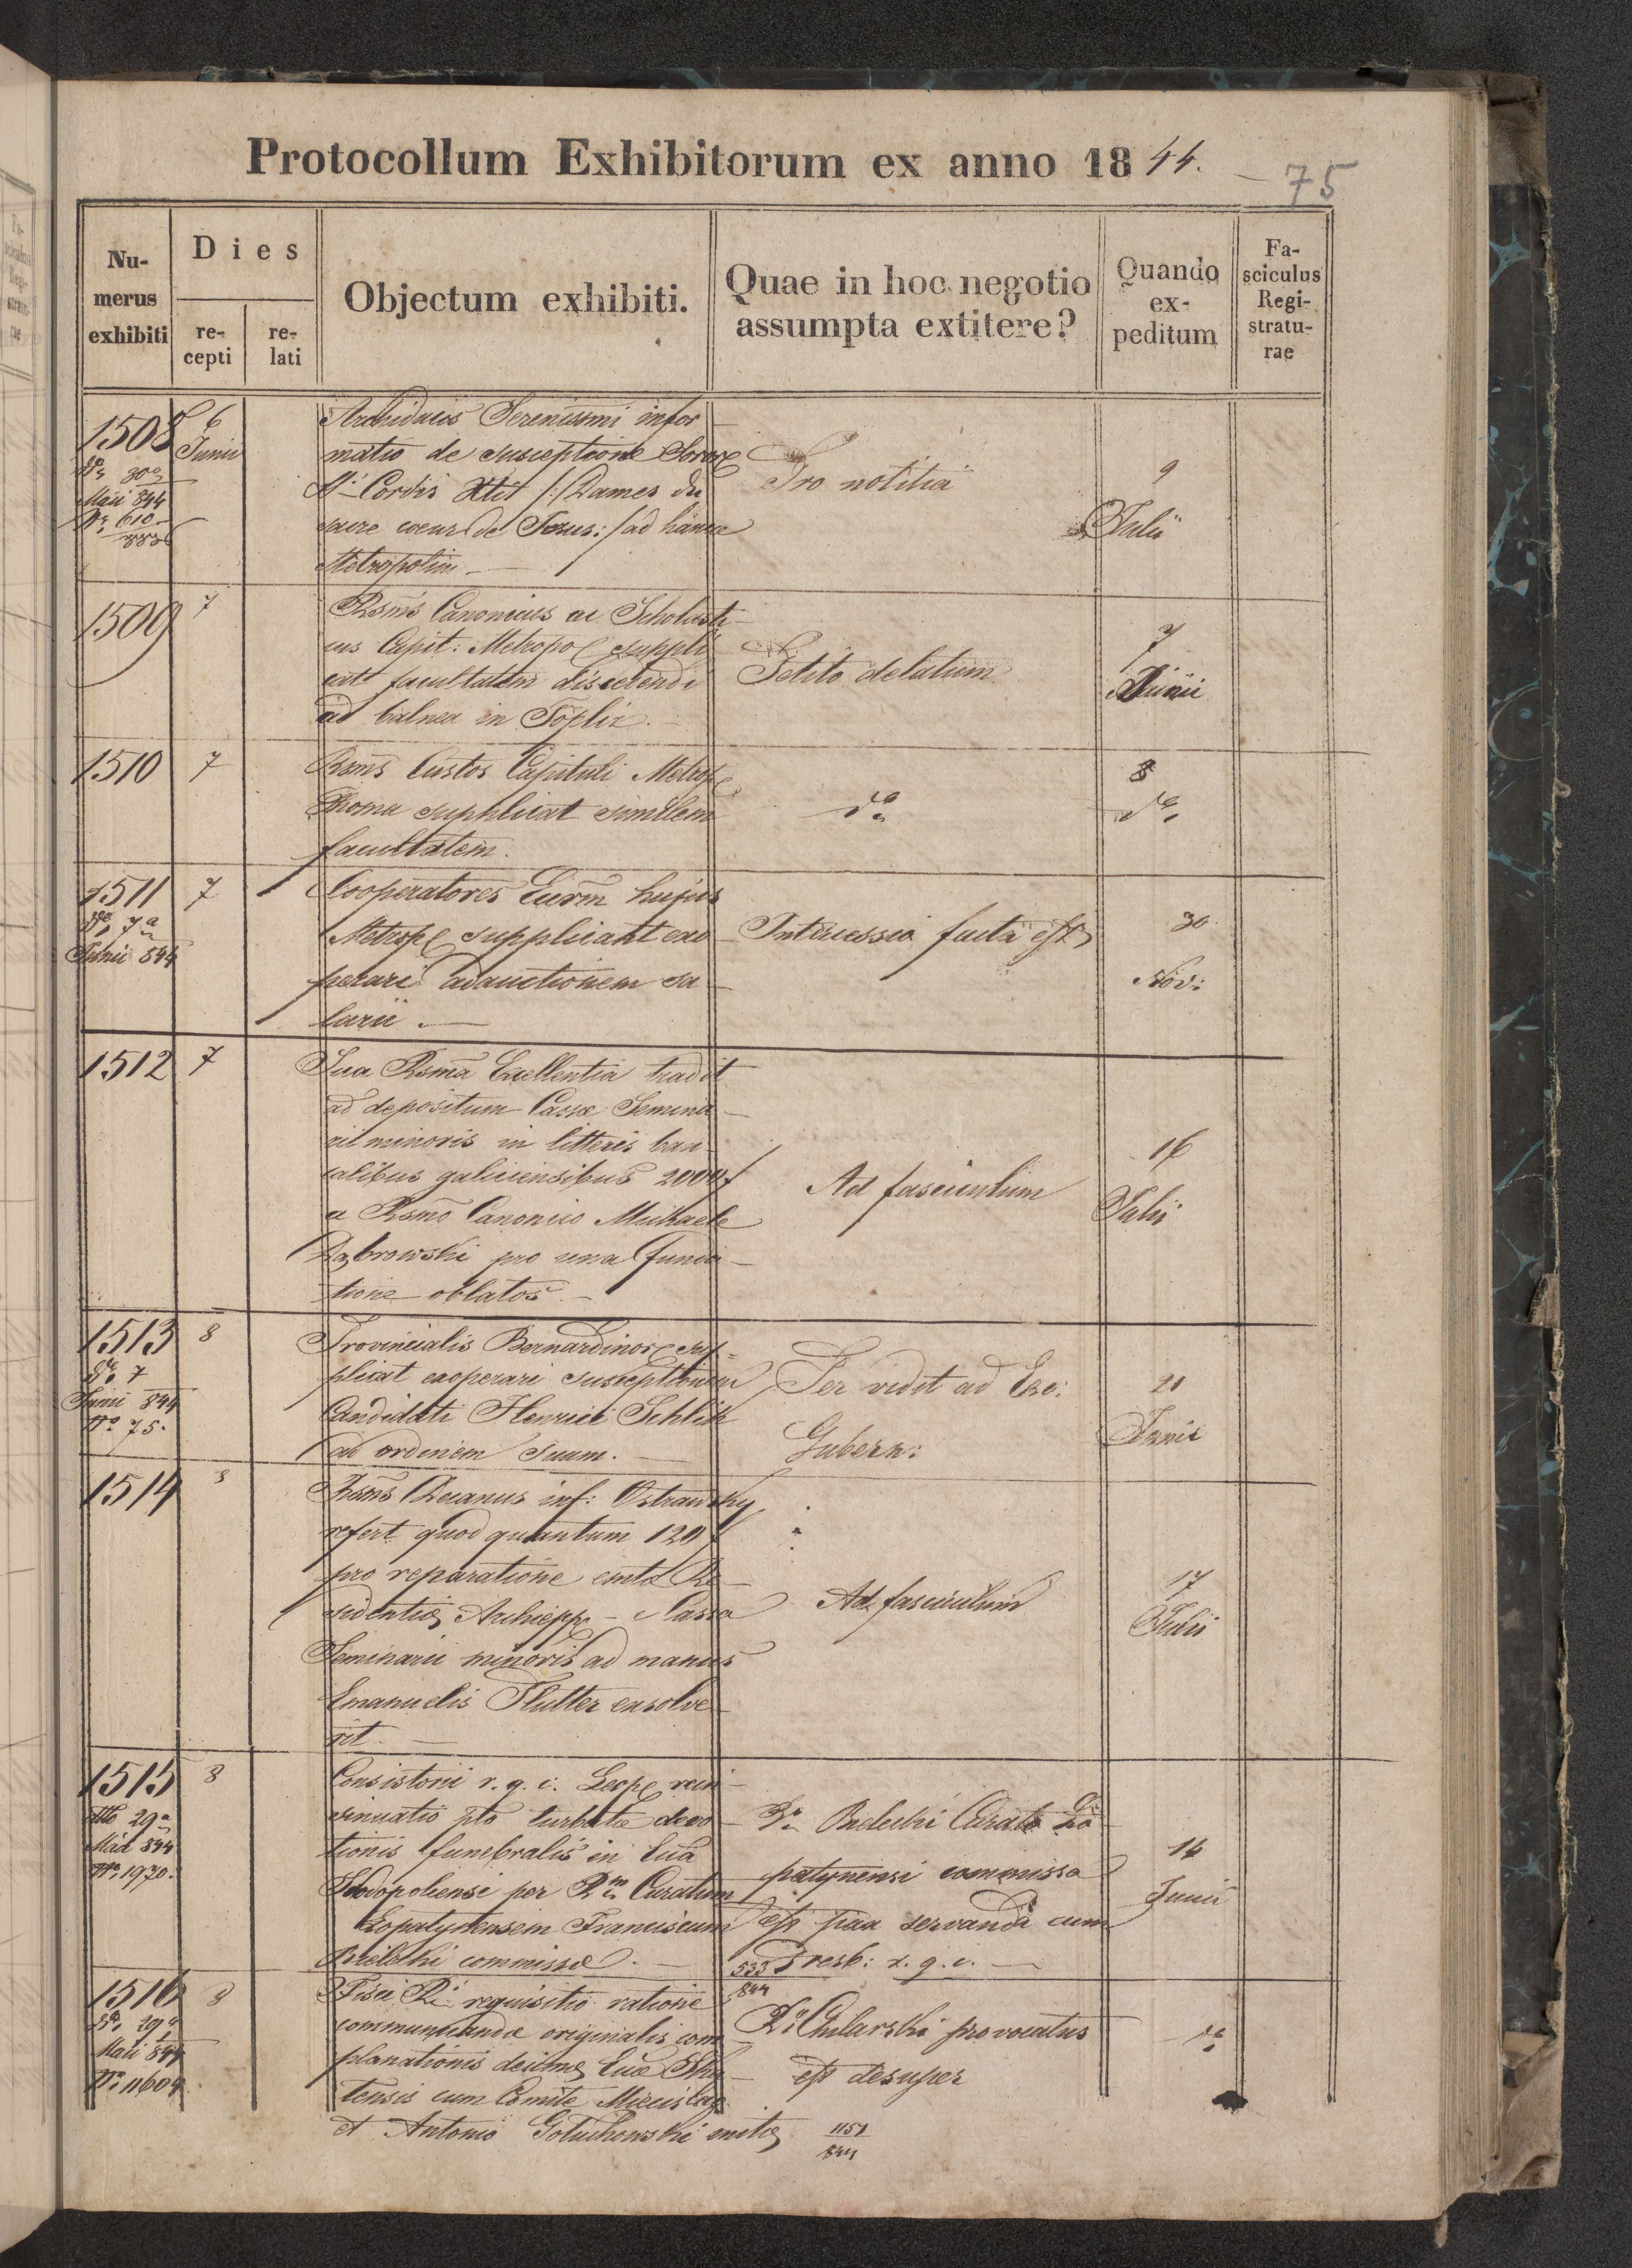 Protocollum Exhibitorum ex anno 1844.
75
Numerus exhibiti
Dies
recepti
relati
Objectum exhibiti.
Quae in hoc negotio assumpta extitere?
Quando expeditum
Fasciculus Registraturae
1508
6
Junii
Maii 844
Nr 610
Archiducis Serenissmi infor
matio de susceptione Soror
Cordis /:Dames du
sacre coeur de Jesus:/ ad hanc
Metropolim
Pro notitia
9
Julii
1509
7
Rsms Canonicus ac Scholasti
cus Capit: Metropol suppli
cat facultatem discedendi
ad balnea in Töpliz.
Petito delatum
7
Junii
1510
7
Rsms Custos Capituli Metrop
supplicat similem
facultatem.
do
8
do
1511
7
do 7a
Junii 844
Cooperatores hujus
Metrop supplicant exo
perari adauctionem sa
larii.
Intercessio facta est
30
Nov:
1512
7
Sua Rsma Excellentia tradit
ad depositum Cassae Semina
rii minoris in litteris ban
calibus galiciensibus 2000 f
a Rsmo Canonico Michaele
Dąbrowski pro una funda
tione oblatos
Ad fasciculum
16
Julii
1513
8
do 7
Junii 844
No 75.
Provincialis Bernardinor sup=
plicat exoperari susceptionem
Candidati Henrici Schlik
ad ordinem suum.
Per vidit ad Exc:
Gubern:
21
Junii
1514
8
Rsms Decanus inf: Ostrawsky
refert quod quantum 120 f
pro reparatione Re
sidentiae Archiepp Cassa
Seminarii minoris ad manus
Emanuelis Flutter exsolve
rit
Ad fasciculum
17
Julii
1515
8
dto 29a
Maii 844
No 1970.
Consistorii r. g. c. Leop rein
sinuatio pto turbatae devo
tionis funebralis in
per Curatum
Lopatynensem Franciscum
commissae.
Curato Lo
patynensi commissa
est pax servanda cum
Presb: r. g. c.
533
844
14
Junii
1516
8
do 29a
Maii 844
No 11604
Fisci Ri requisitio ratione
communicandae originalis com
planationis decimae
tensis cum Comite Miecislao
et Antonio Gołuchowski initae
provocatus
est desuper
1151
844
do